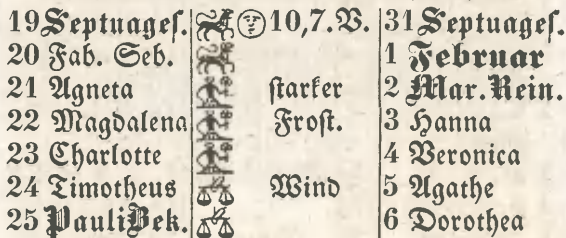 19 Septuageſ. 10,7.V. 31 Septuageſ.
20 Fab. Seb. 1 Februar
21 Agneta ſtarker 2 Mar. Rein.
22 Magdalena Froſt. 3 Hanna
23 Charlotte 4 Veronica
24 Timotheus Wind 5 Agathe
25 Pauli Bek. 6 Dorothea